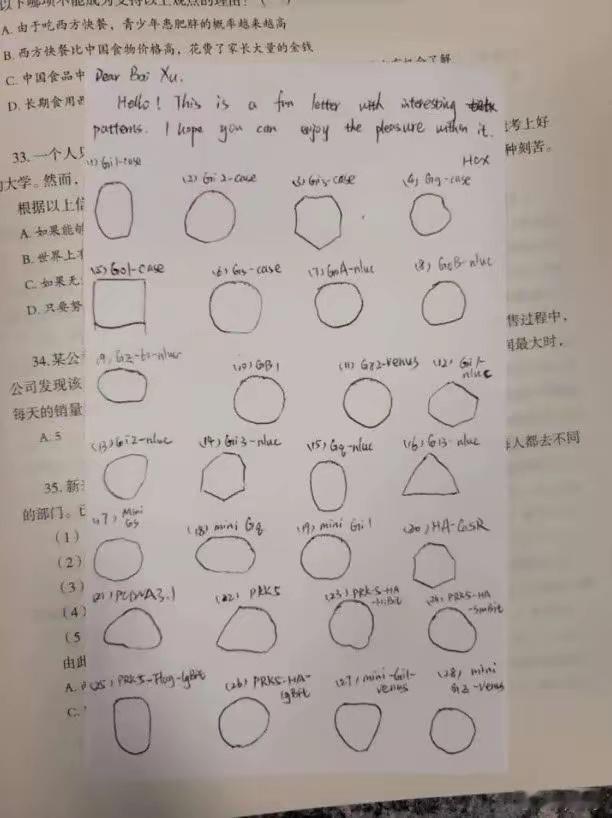 以下哪项不能成为支持以上观点的理由？
A. 由于吃西方快餐，青少年患肥胖的概率越来越高
B. 西方快餐比中国食物价格高，花费了家长大量的金钱
C. 中国食品中
D. 长期食用西
Dear Bai Xu.
Hello! This is a fun letter with interesting
patterns. I hope you can enjoy the pleasure within it.
Hex
33. 一个人
考上好
大学。然而，
种刻苦。
根据以上信
A. 如果能够
B. 世界上
C. 如果无
D. 只要努
(1) Gi1-case
(2) Gi2-case
(3) Gi3-case
(4) Gq-case
(5) Go1-case
(6) Gs-case
(7) GoA-nluc
(8) GoB-nluc
售过程中，
最大时，
34. 某公
公司发现该
每天的销量
A. 5
(9)
(10) GB1
(11) GY2-venus
(12) Gi1-
nluc
(13) Gi2-nluc
(14) Gi3-nluc
(15) Gq-nluc
(16) G13-nluc
人都去不同
35. 新
的部门。
(1)
(2)
(3)
(4)
(5
由此
A.
C.
(17) mini
Gs
(18) mini Gq
(19) mini Gi1
(20) HA-CaSR
(21) PCDNA3.1
(22) PRK5
(23) PRK5-HA
-HiBit
(24) PRK5-HA
-SmBit
(25) PRK5-Flag-lgBit
(26) PRK5-HA-
lgBit
(27) mini-Gi1-
venus
(28) mini
G12-venus